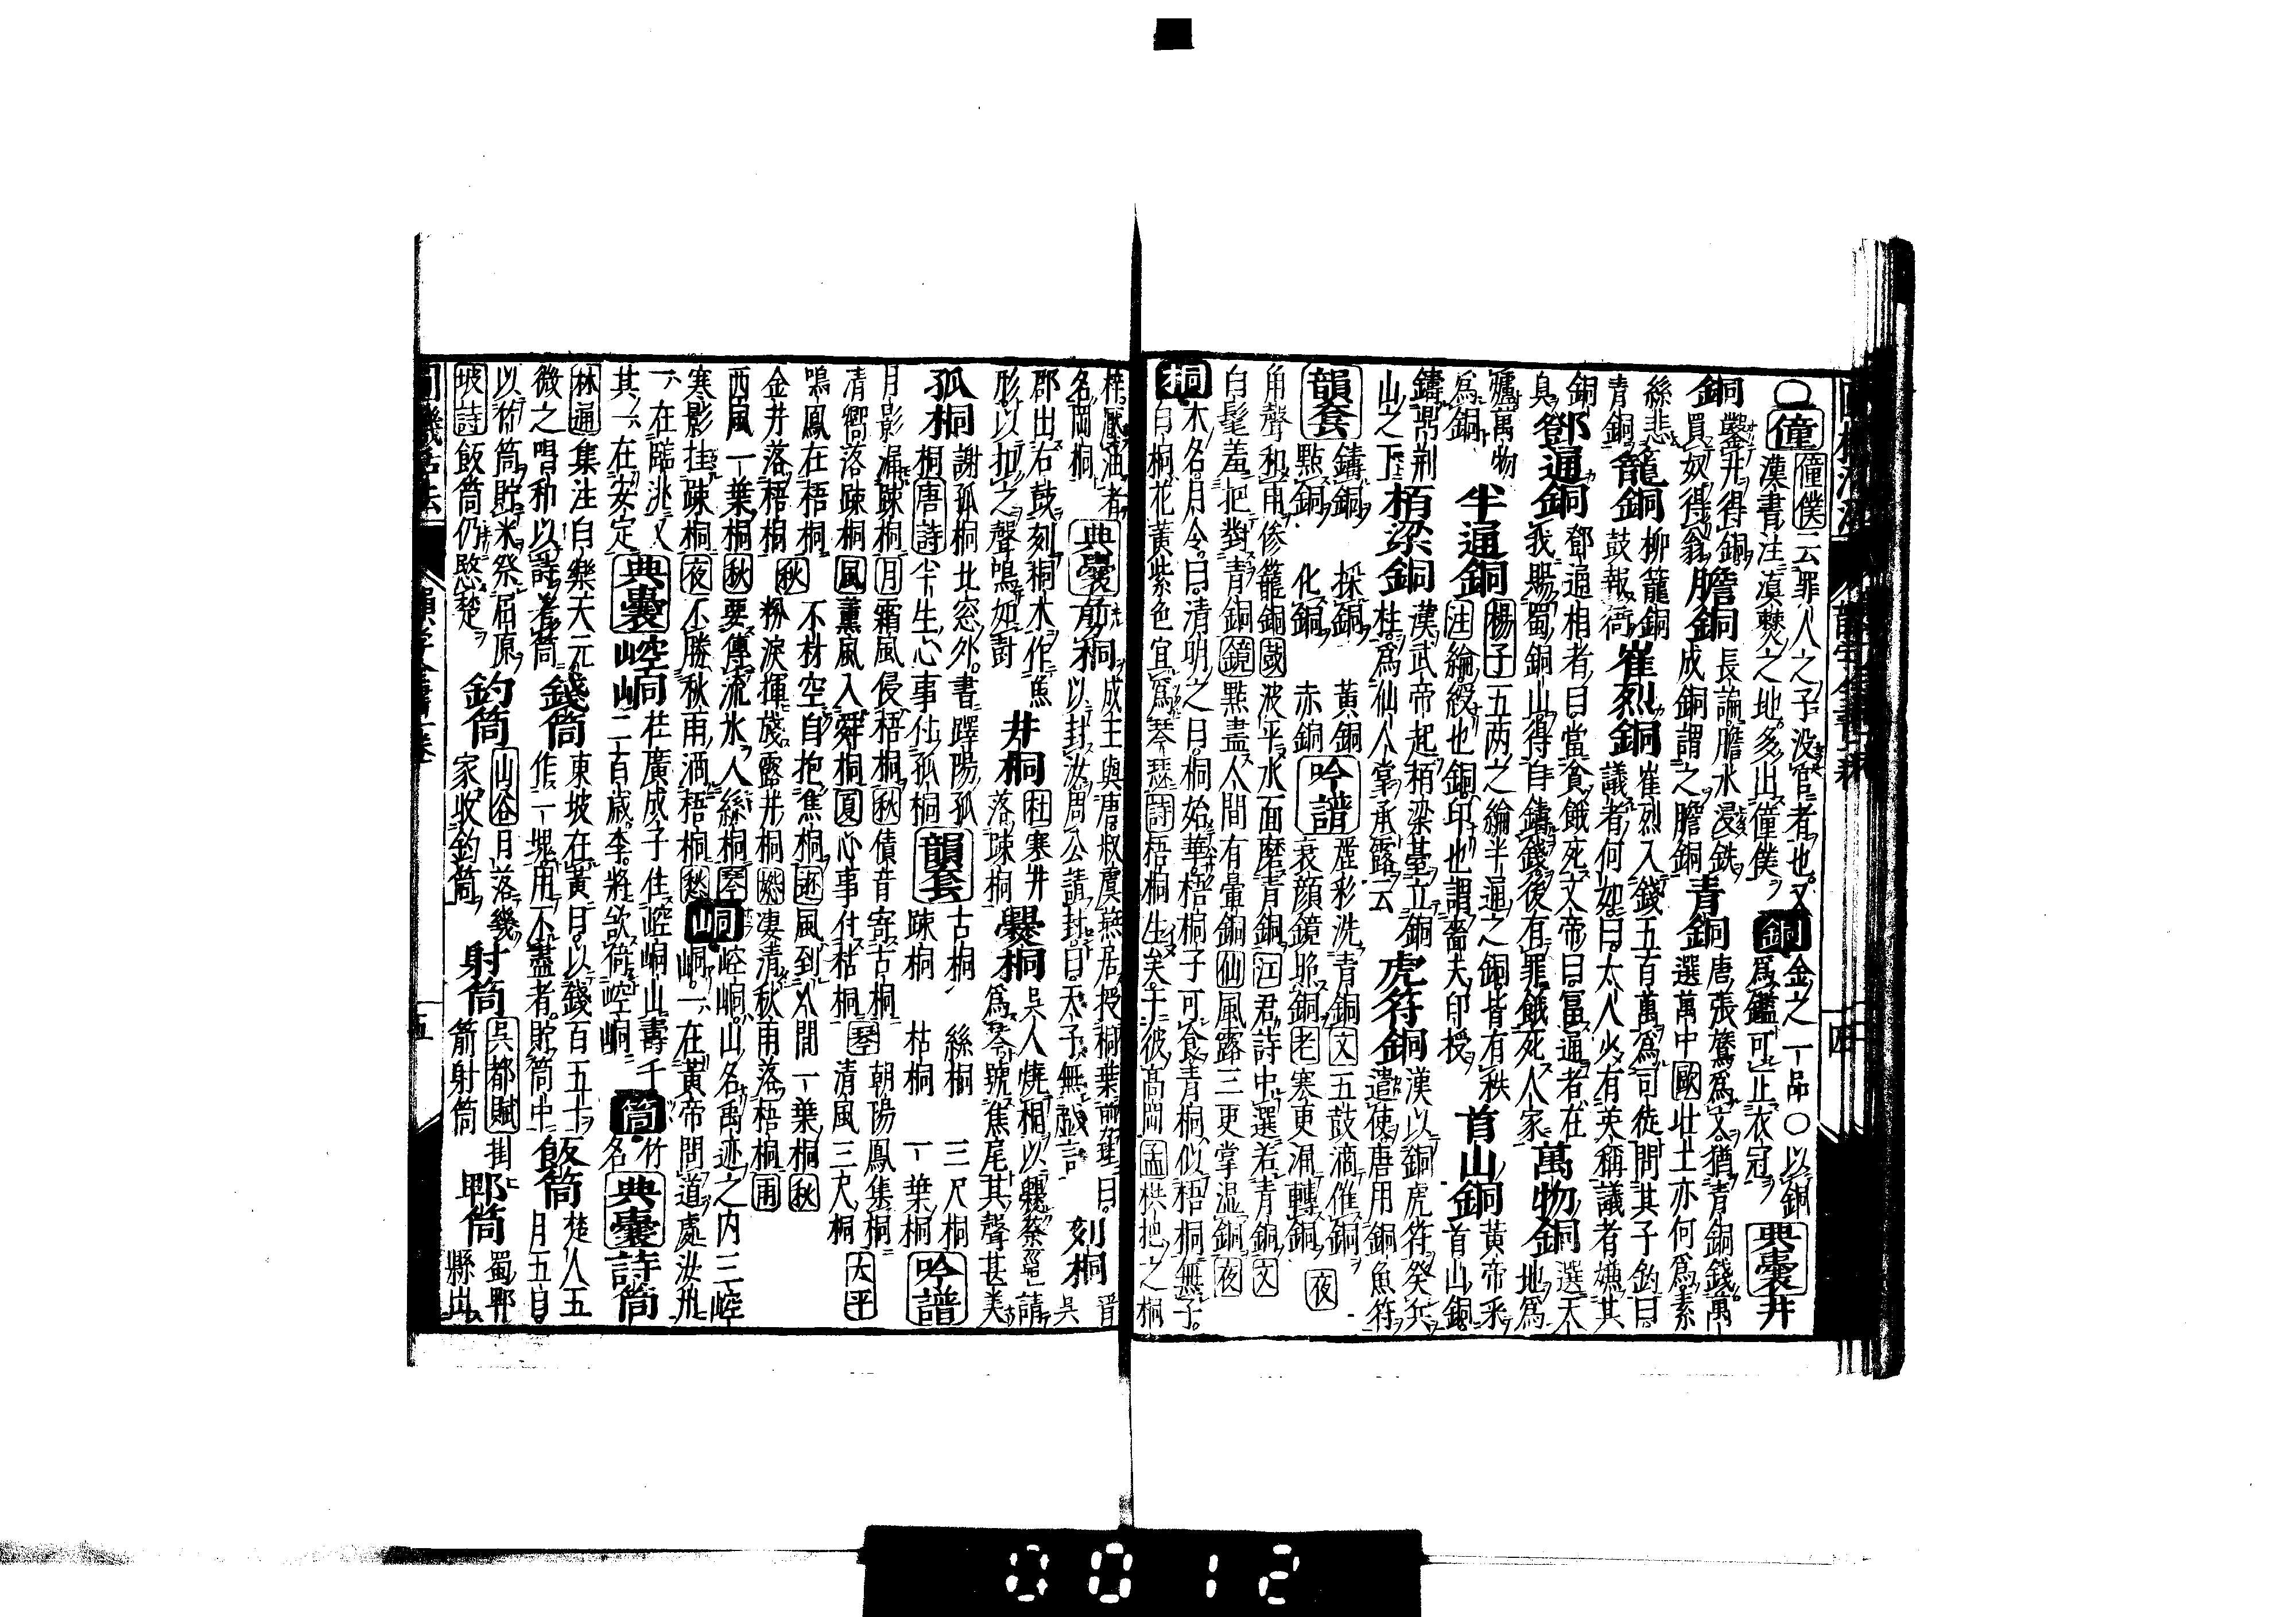 僮 僮僕云罪人之子没官者也又 銅 金之一品○以銅
漢書注滇僰之地多出僮僕 為鑑可正衣冠 典囊 井
銅 鑿井得銅 膽銅 長論膽水浸鉄 青銅 唐張鷟為文猶青銅錢萬
買奴得翁 成銅謂之膽銅 選萬中 國 壮士亦何為素
絲悲青銅 籠銅 柳籠銅鼓報衙 崔烈銅 崔烈入錢五百萬為司徒問其子鈞曰
議者何如曰大人少有英稱議者嫌其
銅臭 鄧通銅 鄧通相者曰當貧餓死文帝曰冨通者在
我賜蜀銅山得自鑄錢後有罪餓死人家 萬物銅 選天地為
爐萬物為銅 半通銅 楊子五两之綸半通之銅皆有秩
注綸綬也銅印也謂嗇夫印授 首山銅 黃帝采首山銅
鑄鼎荆山之下 栢梁銅 漢武帝起栢梁臺立銅
柱為仙人掌承露云 虎符銅 漢以銅虎符癸兵
遣使唐用銅魚符
韻套 鑄銅 採銅 黄銅 點銅 化銅 赤銅 吟譜 塵彩洗青銅 文 五鼓滴催銅 夜
衰顔鏡兠銅 老 寒更漏轉銅
角聲和雨修籠銅 鼓 波平水面磨青銅 江 君詩中選若青銅 文
白髦羞把對青銅 鏡 點盡人間有暈銅 仙 風露三更掌湿銅 夜
桐 木名月令曰清明之日桐始華梧桐子可食青桐似梧桐無子
白桐花黃紫色宜為琴瑟 詩 梧桐生矣于彼高岡 孟 拱把之桐
名岡桐 典囊 剪桐 成王與唐叔虞燕居授桐葉而珪曰
以封汝周公請封曰天子無戯言 刻桐 晋吳
郡出石鼓刻桐木作魚形以扣之聲鳴如對 井桐 杜寒井落踈桐 爨桐 吳人燒桐以爨蔡邕請
為琴號焦尾其聲甚美
孤桐 謝孤桐北窓外書嶧陽孤桐 唐詩 半生心事付孤桐 韻套 古桐 絲桐 三尺桐
踈桐 枯桐 一葉桐 吟譜
月影漏踈桐 月 霜風侵梧桐 秋 債音寄古桐 琴 朝陽鳳集桐 大平
清嚮落踈桐 風 薫風入舜桐 夏 心事付枯桐 清風三尺桐
鳴鳳在梧桐 不材空自抱焦桐 述 風到人間一葉桐 秋
金井落梧桐 秋 粉淚揮殘露井桐 愁 凄清秋雨落梧桐 雨
西風一葉桐 秋 要傳流水人絲桐 琴
寒影挂踈桐 夜 不勝秋雨洒梧桐 愁 峒 崆峒山名禹迹之内三崆
峒一在黃帝問道處汝州
一在臨洮又其一在安定 典囊 崆峒 杜廣成子住崆峒山壽千
二百歲李將欲倚崆峒 筒 竹名 典囊 詩筒
林逋集注白樂天元微之唱和以詩著筒 錢筒 東坡在黃日以錢百五十
作一塊用不盡者貯筒中 飯筒 楚人五月五自
以竹筒貯米祭屈原 坡詩 飯筒仍愍楚 釣筒 山谷月落幾家收釣筒 射筒 吳都賦掛箭射筒 郫筒 蜀郫縣出
0012